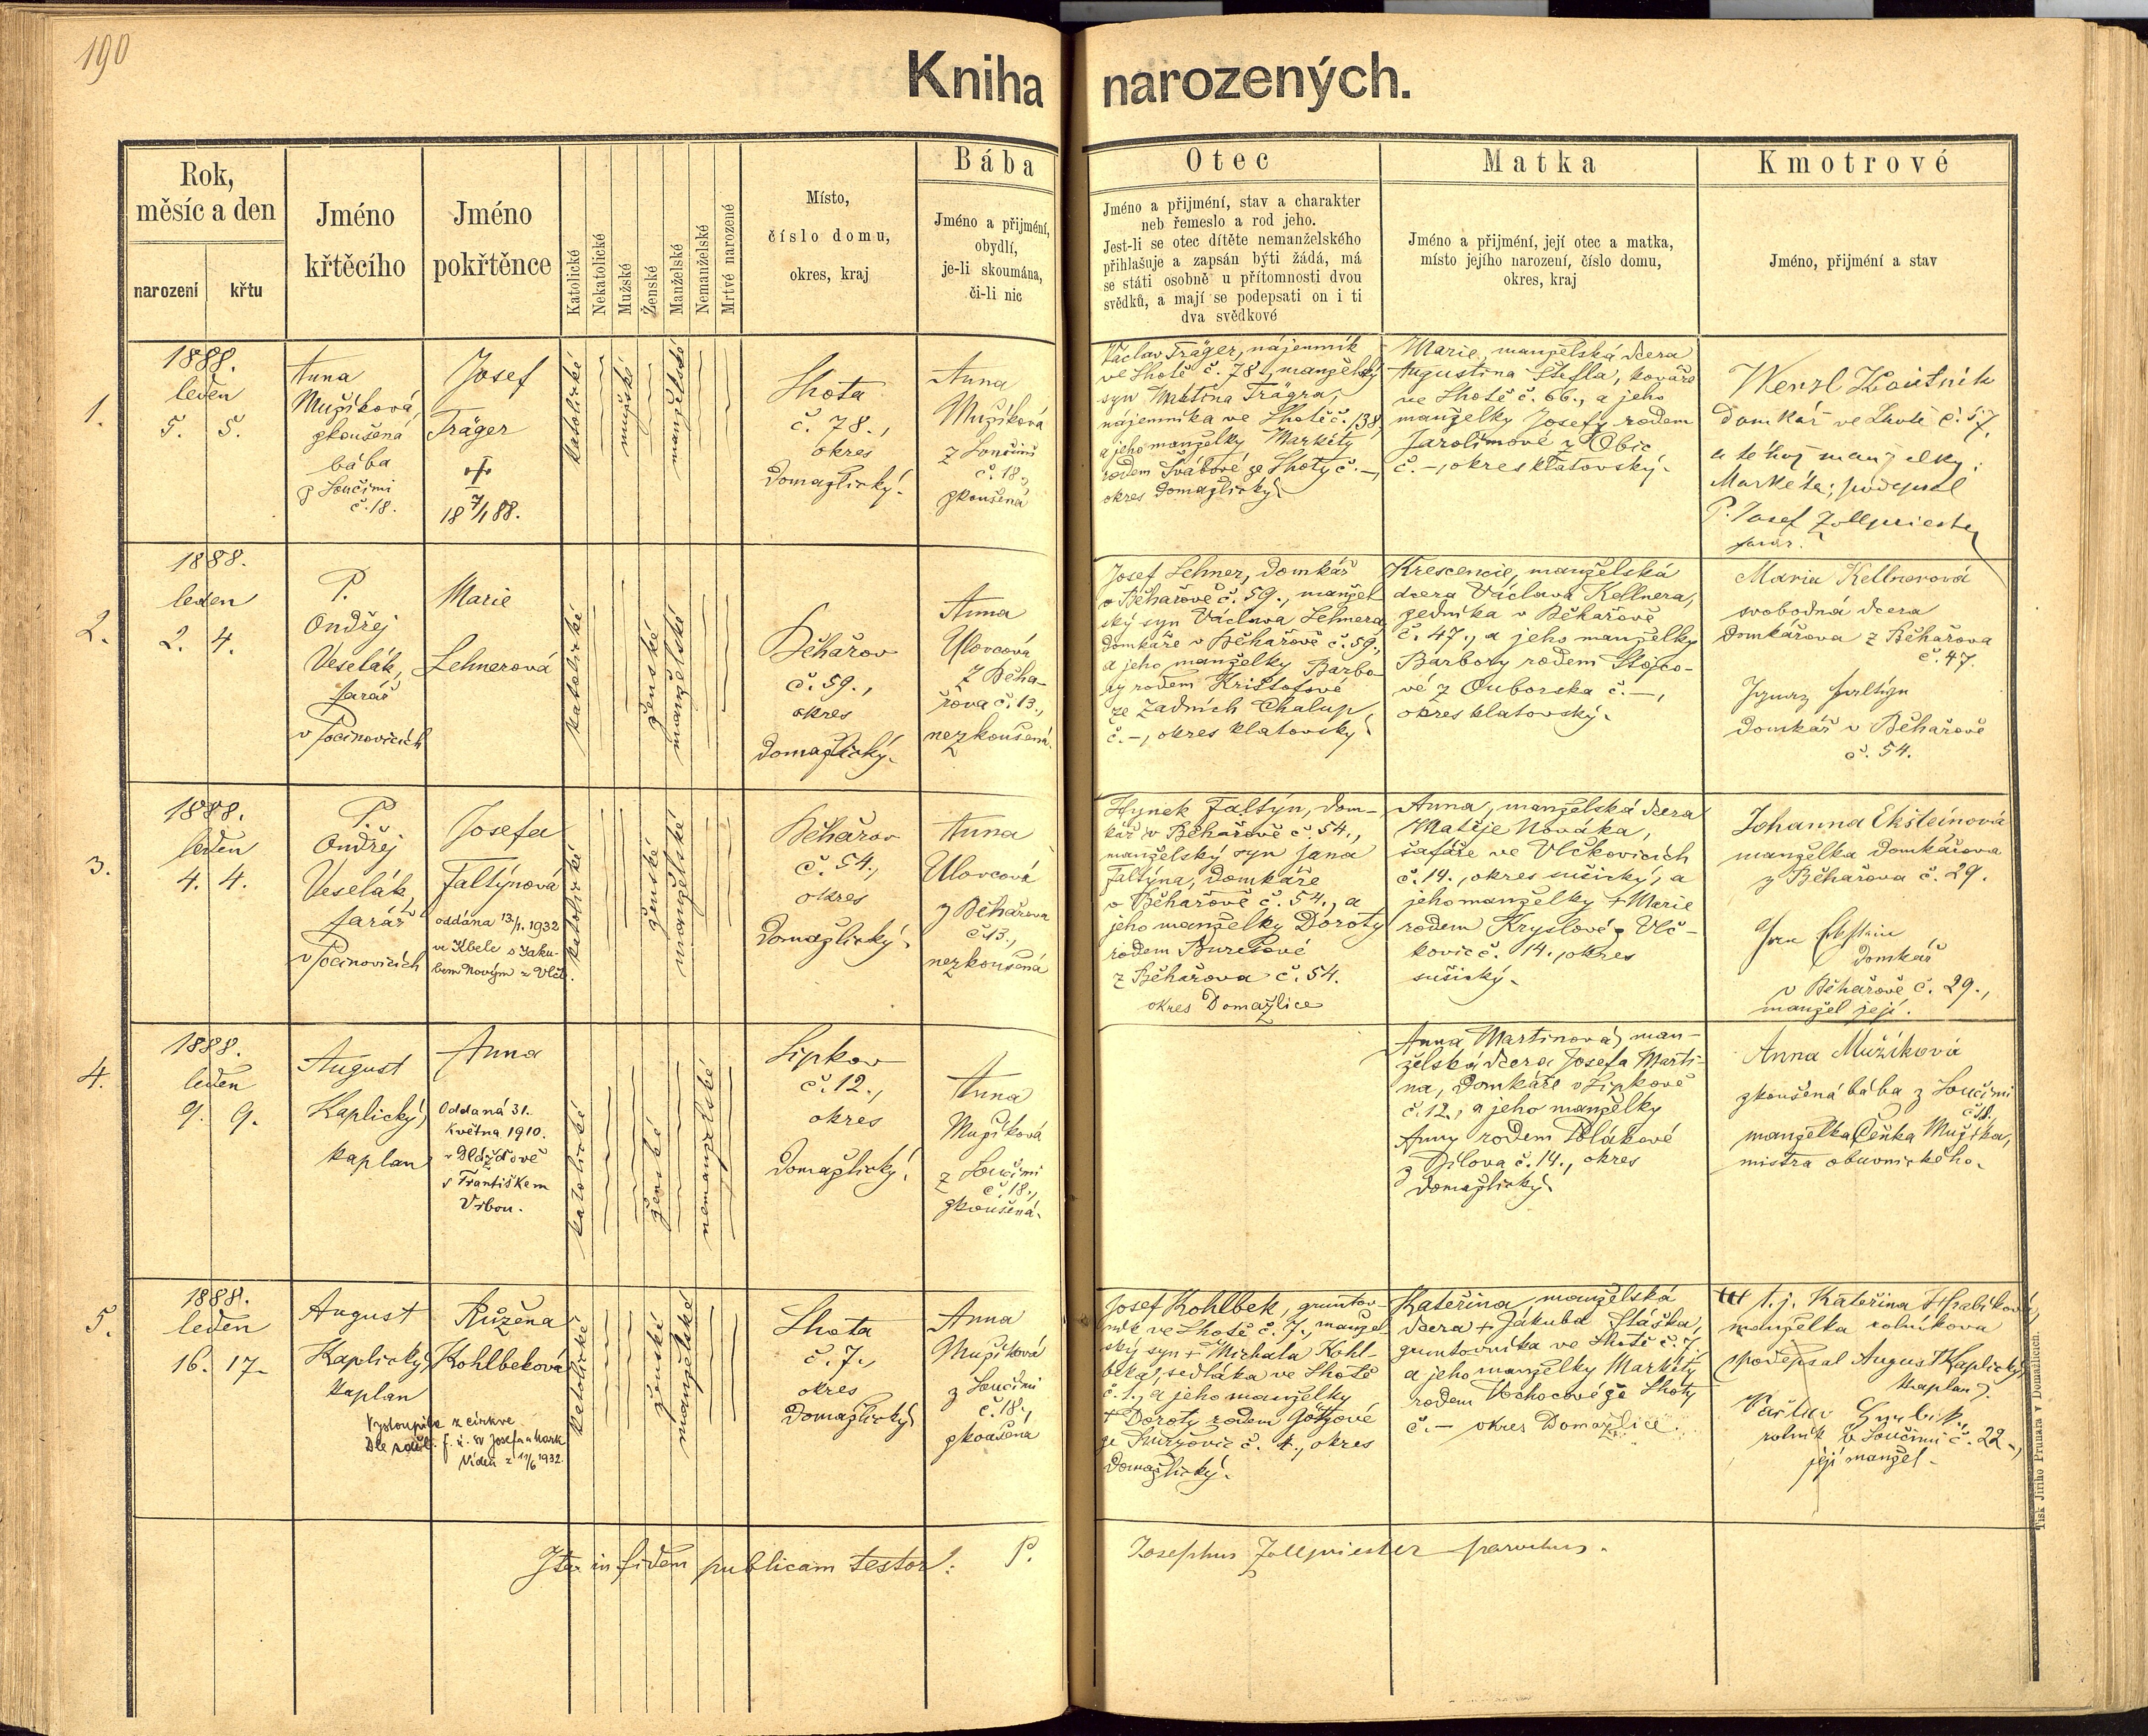 190
Kniha narozených.
Rok,
měsíc a den
narození
křtu
Jméno
křtěcího
Jméno
pokřtěnce
Katolické
Nekatolické
Mužské
Ženské
Manželské
Nemanželské
Mrtvé narozené
Místo,
číslo domu,
okres, kraj
Bába
Jméno a přijmění,
obydlí,
je-li skoumána,
či-li nic
Otec
Jméno a přijmění, stav a charakter
neb řemeslo a rod jeho.
Jest-li se otec dítěte nemanželského
přihlašuje a zapsán býti žádá, má
se státi osobně u přítomnosti dvou
svědků, a mají se podepsati on i ti
dva svědkové
Matka
Jméno a přijmění, její otec a matka,
místo jejího narození, číslo domu,
okres, kraj
Kmotrové
Jméno, přijmění a stav
1.
1888.
leden
5. 5.
Anna
Mužíková
zkoušená
bába
z Loučimi
č. 18.
Josef
Träger
18 7/1 88.
katolické
mužské
manželské
Lhota
č. 78.,
okres
Domažlický.
Anna
Mužíková
z Loučimi
č. 18.,
zkoušená
Václav Träger, nájemník
ve Lhotě č. 78., manželský
syn Martina Trägra,
nájemníka ve Lhotě č. 138,
a jeho manželky Markéty
rodem Švábové ze Lhoty č. –,
okres Domažlický.
Marie, manželská dcera
Augustina Štefla, kováře
ve Lhotě č. 66., a jeho
manželky Josefy rodem
Jarolímové z Obic
č. –, okres klatovský.
Wenzl Koutník
domkář ve Lhotě č. 57.
a téhož manželky
Markéta; podepsal
P. Josef Zollpriester
farář.
2.
1888.
leden
2. 4.
P.
Ondřej
Veselák,
farář
v Pocinovicích
Marie
Lehnerová
katolické
ženské
manželské
Běhařov
č. 59.,
okres
Domažlický.
Anna
Ulovcová
z Běha-
řova č. 13.,
nezkoušená.
Josef Lehner, domkář
v Běhařově č. 59., manžel
ský syn Václava Lehnera
domkáře v Běhařově č. 59.,
a jeho manželky Barbo-
ry rodem Krištofové
ze Zadních Chalup
č. –, okres klatovský.
Krescencie, manželská
dcera Václava Kellnera,
zedníka v Běhařově
č. 47., a jeho manželky
Barbory rodem
vé z Ouborska č. –,
okres klatovský.
Maria Kellnerová
svobodná dcera
domkářova z Běhařova
č. 47.
Ignaz Faltýn
domkář v Běhařově
č. 54.
3.
1888.
leden
4. 4.
P.
Ondřej
Veselák,
farář
v Pocinovicích
Josefa
Faltýnová
oddána 13./1. 1932
ve Kbele s Jaku-
bem Novým z Vlč.
katolické
ženské
manželské
Běhařov
č. 54.,
okres
Domažlický.
Anna
Ulovcová
z Běhařova
č. 13.,
nezkoušená
Hynek Faltýn, dom-
kář v Běhařově č. 54.,
manželský syn Jana
Faltýna, domkáře
v Běhařově č. 54., a
jeho manželky Doroty
rodem Burešové
z Běhařova č. 54.
okres Domažlice
Anna, manželská dcera
Matěje Nováka,
šafáře ve Vlčkovicích
č. 14., okres sušický, a
jeho manželky + Marie
rodem Kryslové z Vlč-
kovic č. 14., okres
sušický.
Johanna Ekšteinová
manželka domkářova
z Běhařova č. 29.
Jan Ekstein
domkář
v Běhařově č. 29.,
manžel její.
4.
1888.
leden
9. 9.
August
Kaplický,
kaplan
Anna
Oddaná 31.
května 1910.
v Dlážďově
s Františkem
Vrbou.
katolické
ženské
nemanželské
Lipkov
č. 12.,
okres
Domažlický.
Anna
Mužíková
z Loučimi
č. 18.,
zkoušená.
Anna Martinová, man-
želská dcera Josefa Marti-
na, domkáře v Lipkově
č. 12., a jeho manželky
Anny rodem Polákové
z Dílova č. 14., okres
Domažlický.
Anna Mužíková
zkoušená bába z Loučimi
č. 18.,
manželka Čeňka Mužíka,
mistra obuvnického.
5.
1888.
leden
16. 17.
August
Kaplický,
kaplan
Růžena
Kohlbeková
Vystoupila z církve
Dle f. ú. sv. Josefa a Mark
Vídeň z 11/6 1932.
katolické
ženské
manželské
Lhota
č. 7.,
okres
Domažlický.
Anna
Mužíková
z Loučimi
č. 18.,
zkoušená
Josef Kohlbek, gruntov-
ník ve Lhotě č. 7., manžel-
ský syn + Michala Kohl-
beka, sedláka ve Lhotě
č. 1., a jeho manželky
+ Doroty rodem Götzové
ze č. 4., okres
Domažlický.
Kateřina manželská
dcera + Jakuba Sláška,
gruntovníka ve Lhotě č. 7.
a jeho manželky Markéty
rodem Vochocové ze Lhoty
č. – okres Domažlice.
+++ t. j. Kateřina Hrabíková,
manželka rolníkova
(podepsal August Kaplický,
kaplan).
Václav Hrabík,
rolník v Loučimi č. 22.,
její manžel.
Ita in fidem publicam testor: P. Josephus Zollpriester parochus.
Tisk Jiřího Prunara v Domažlicích.